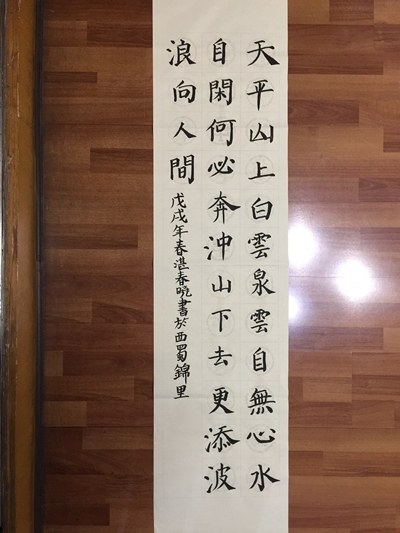 天平山上白雲泉雲自無心水
自閑何必奔沖山下去更添波
浪向人間
戊戌年春湛春晓書於西蜀錦里